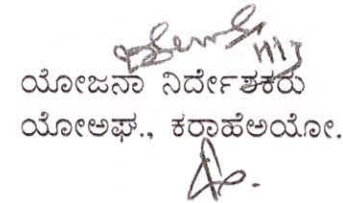 ಯೋಜನಾ ನಿರ್ದೇಶಕರು
ಯೋಅಘ., ಕರಾಹೆಅಯೋ.